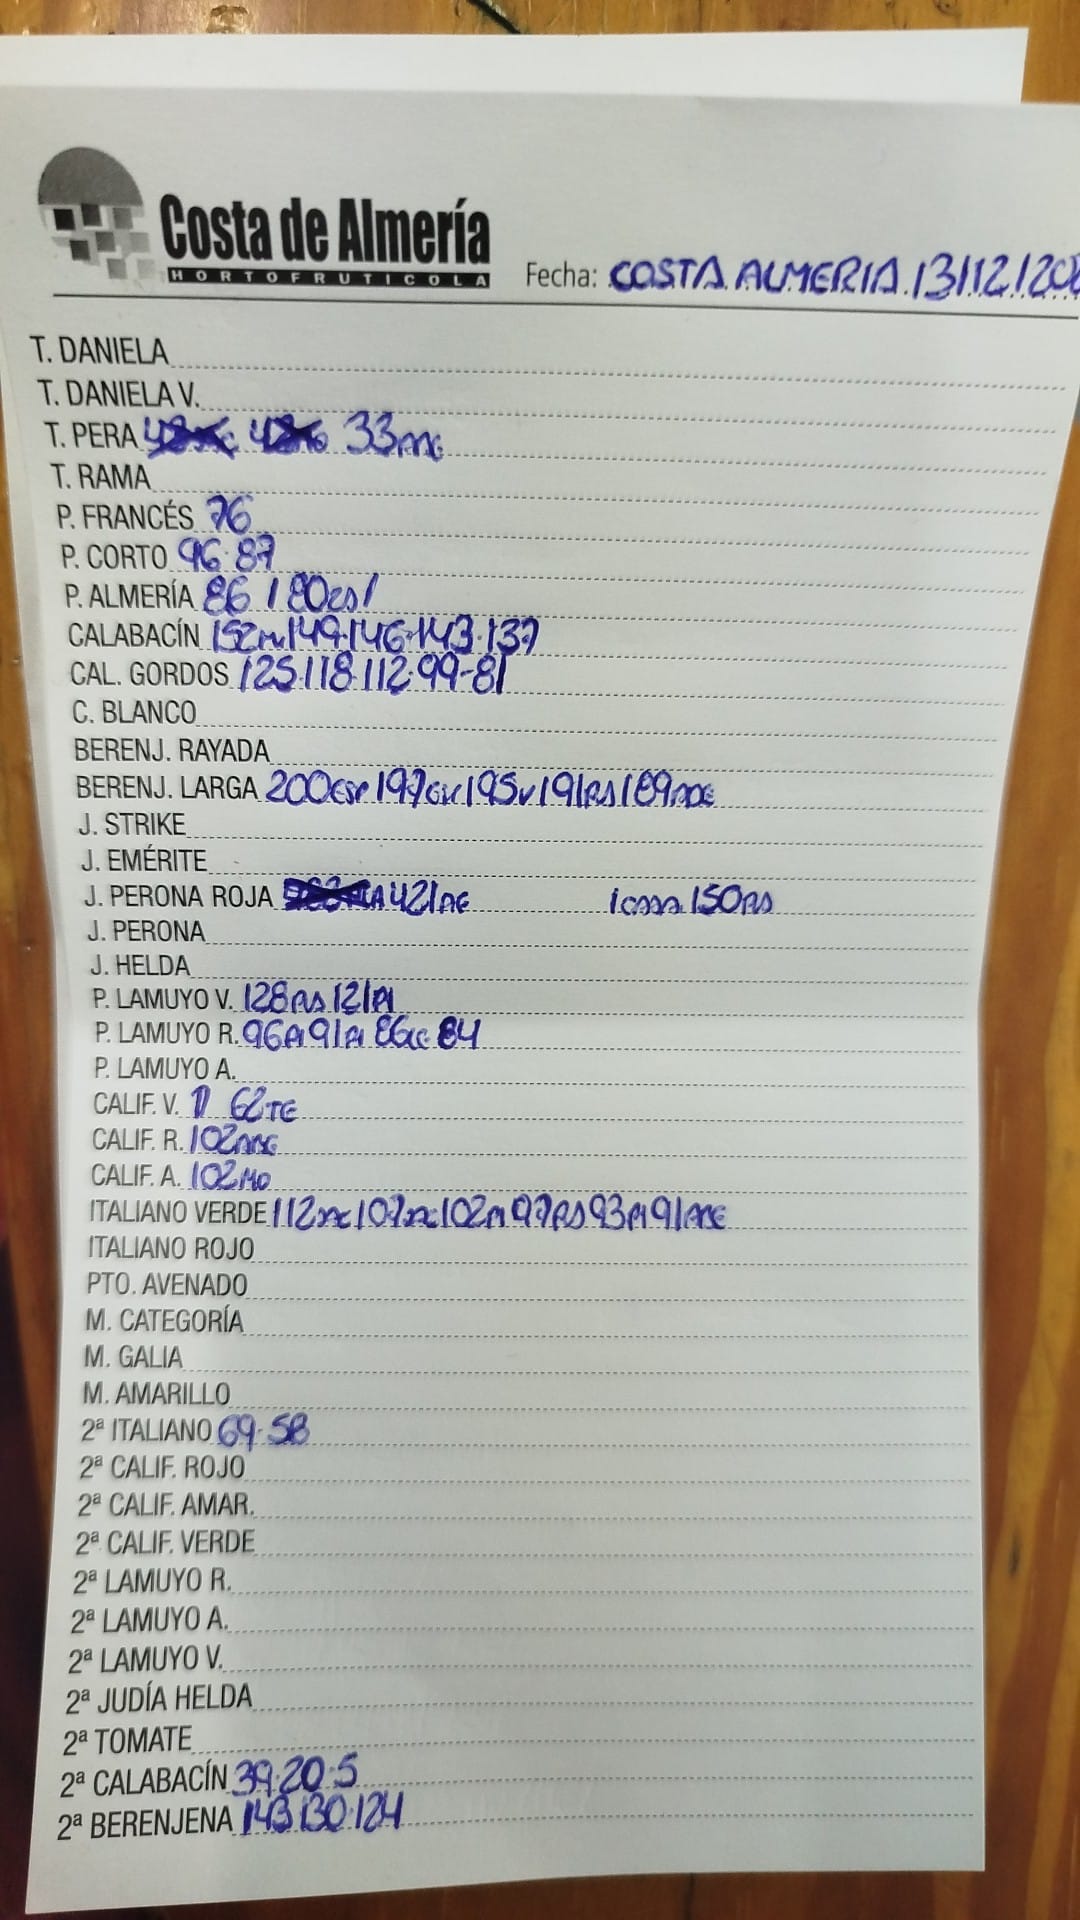 Costa de Almería
HORTOFRUTICOLA
Fecha: COSTA ALMERIA 13/12/20
T. DANIELA
T. DANIELA V.
T. PERA 33
T. RAMA
P. FRANCÉS 76
P. CORTO 96-87
P. ALMERÍA 86 / 80
CALABACÍN 152 149-146-143-137
CAL. GORDOS 125-118-112-99-81
C. BLANCO
BERENJ. RAYADA
BERENJ. LARGA 200 197 195 191 189
J. STRIKE
J. EMÉRITE
J. PERONA ROJA 421 150
J. PERONA
J. HELDA
P. LAMUYO V. 128 121
P. LAMUYO R. 96 91 86 84
P. LAMUYO A.
CALIF. V. 62TE
CALIF. R. 102
CALIF. A. 102
ITALIANO VERDE 112 107 102 97 93 91
ITALIANO ROJO
PTO. AVENADO
M. CATEGORÍA
M. GALIA
M. AMARILLO
2ª ITALIANO 69-58
2ª CALIF. ROJO
2ª CALIF. AMAR.
2ª CALIF. VERDE
2ª LAMUYO R.
2ª LAMUYO A.
2ª LAMUYO V.
2ª JUDÍA HELDA
2ª TOMATE
2ª CALABACÍN 39-20-5
2ª BERENJENA 143-130-124